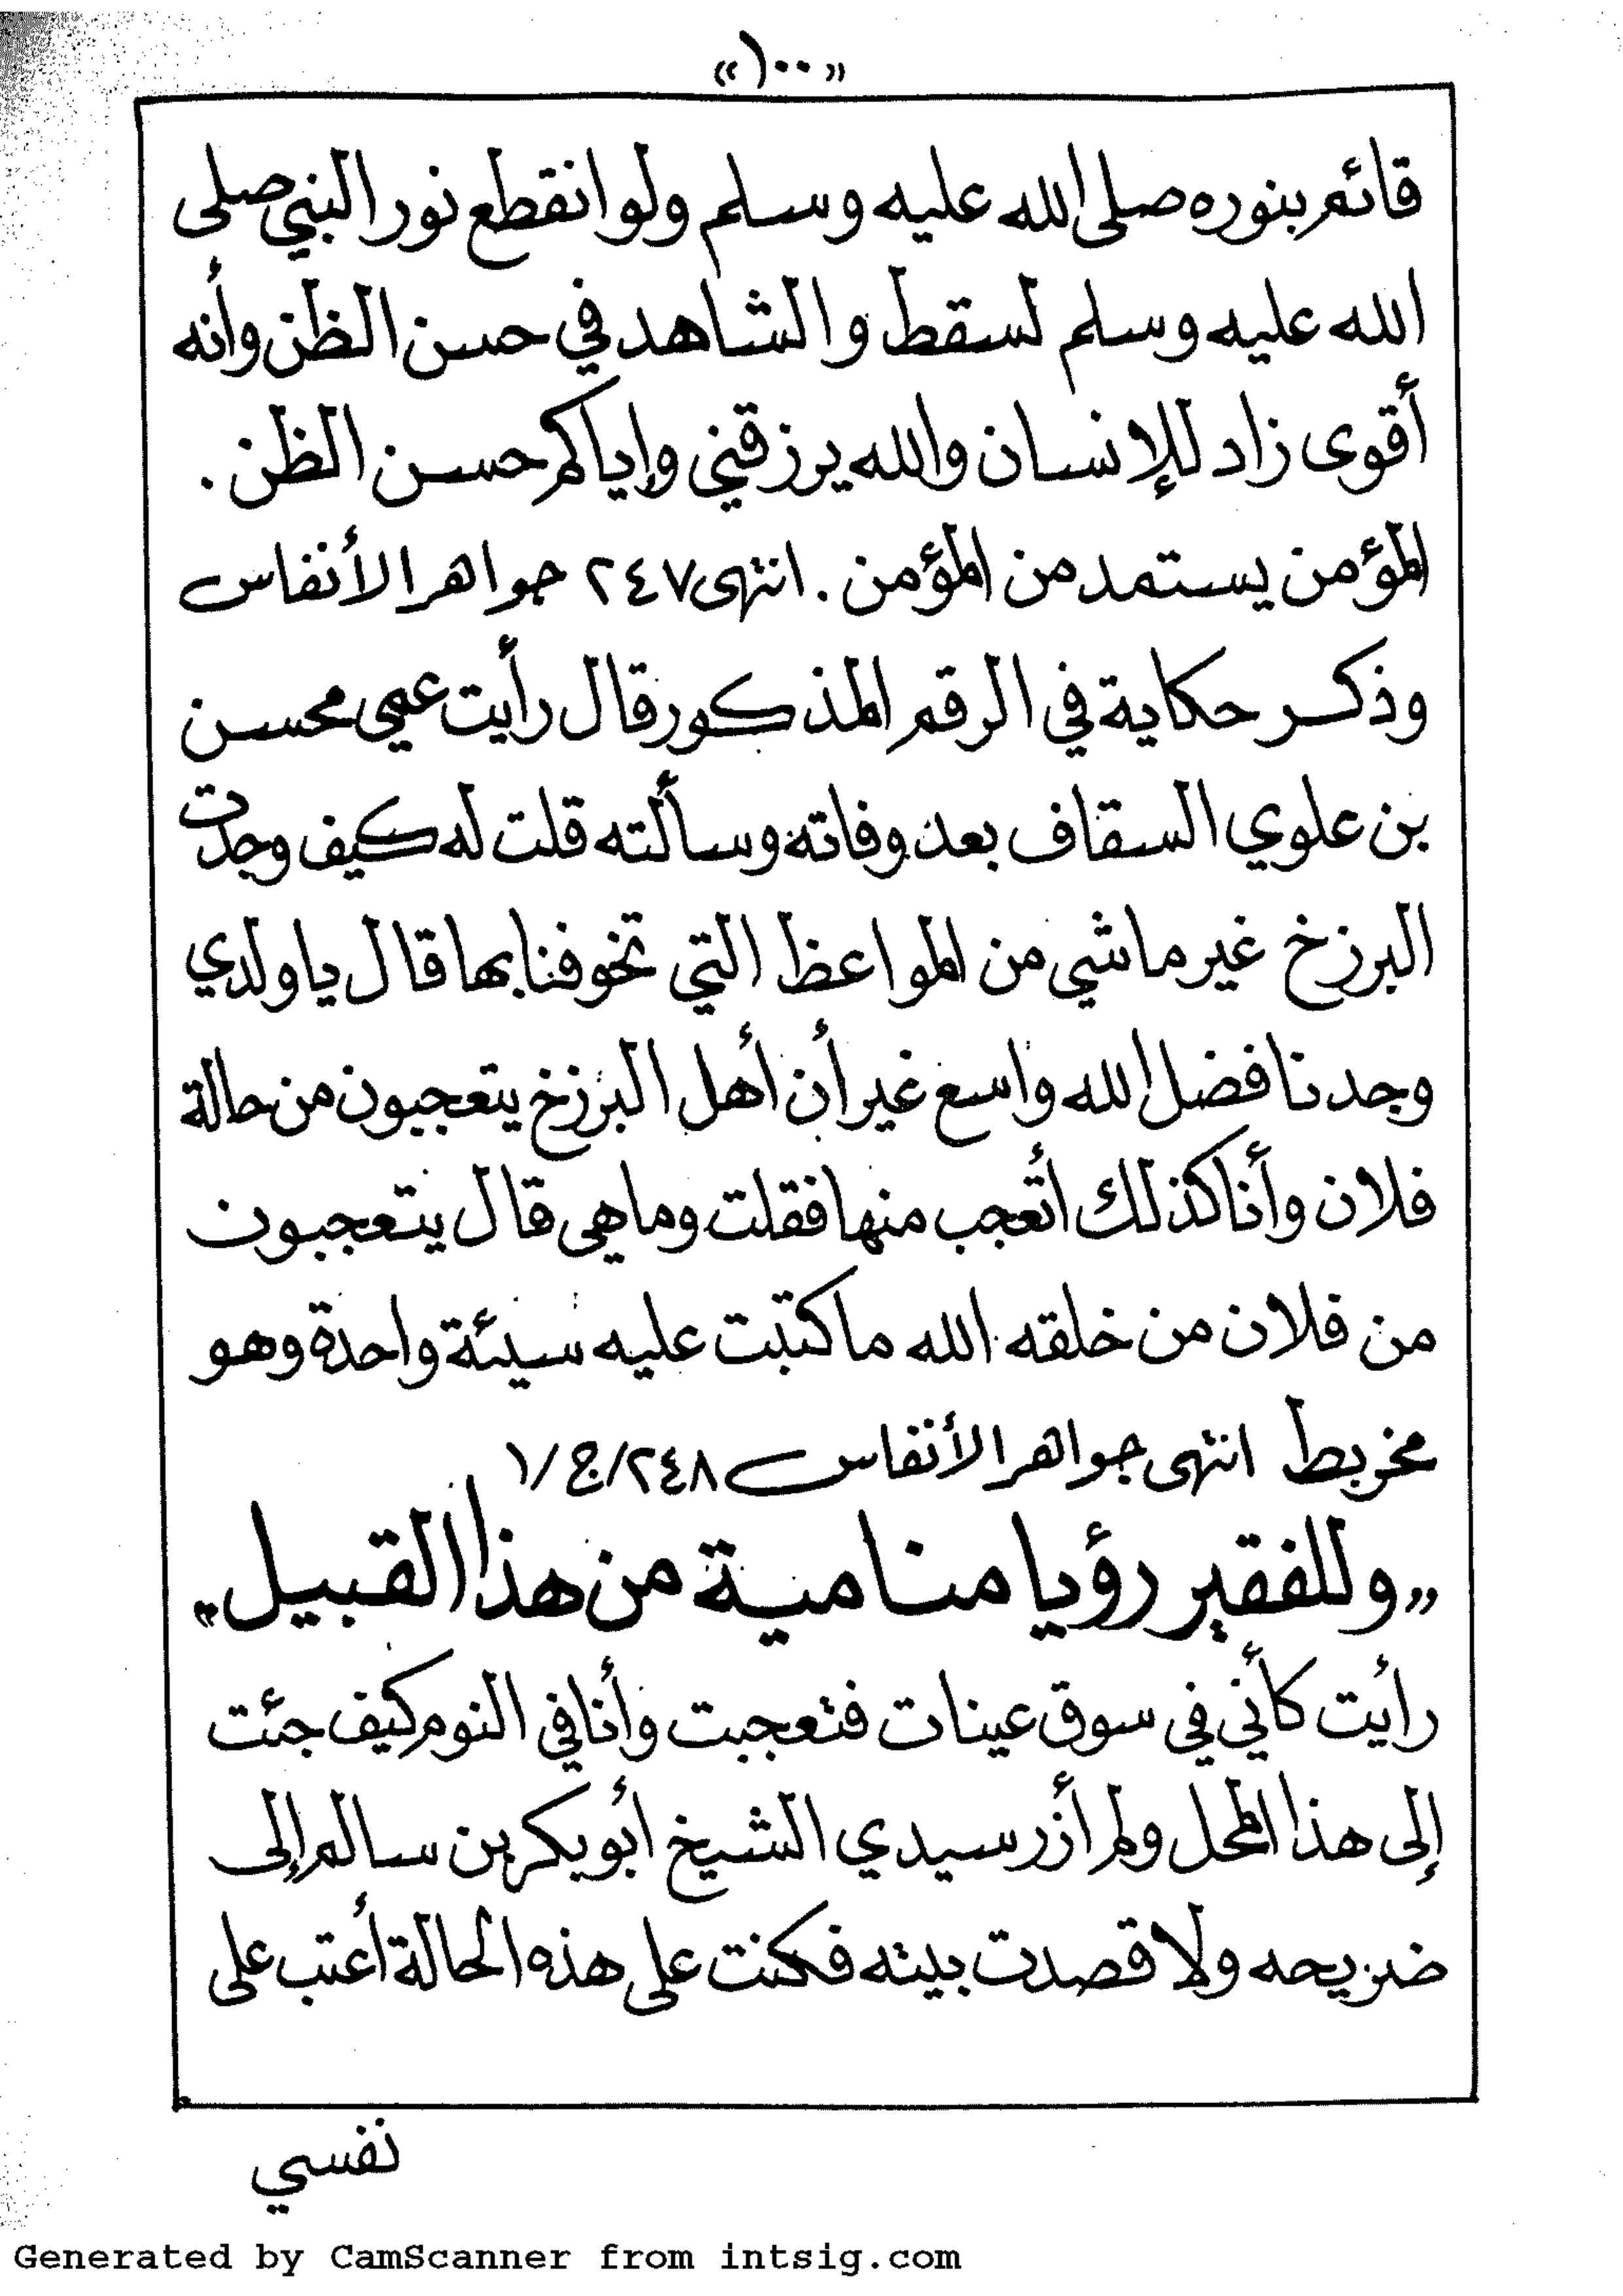 «١٠٠»
قائم بنوره صلى الله عليه وسلم ولو انقطع نور النبي صلى
الله عليه وسلم لسقط والشاهد في حسن الظن وأنه
أقوى زاد للإنسان والله يرزقني وإياكم حسن الظن .
المؤمن يستمد من المؤمن . انتهى ٢٤٧ جواهر الأنفاس
وذكر حكاية في الرقم المذكور قال رأيت عمي محسن
بن علوي السقاف بعد وفاته وسألته قلت له كيف وجدت
البرزخ غير ماشي من المواعظ التي تخوفنا بها قال يا ولدي
وجدنا فضل الله واسع غير أن أهل البرزخ يتعجبون من حالة
فلان وأنا كذلك أتعجب منها فقلت وما هي قال يتعجبون
من فلان من خلقه الله ما كتبت عليه سيئة واحدة وهو
مخربط انتهى جواهر الأنفاس ٢٤٨/ج/١
«وللفقير رؤيا منامية من هذا القبيل»
رأيت كأني في سوق عينات فتعجبت وأنا في النوم كيف جئت
إلى هذا المحل ولم أزر سيدي الشيخ أبو بكر بن سالم إلى
ضريحه ولا قصدت بيته فكنت على هذه الحالة أعتب على
نفسي
Generated by CamScanner from intsig.com